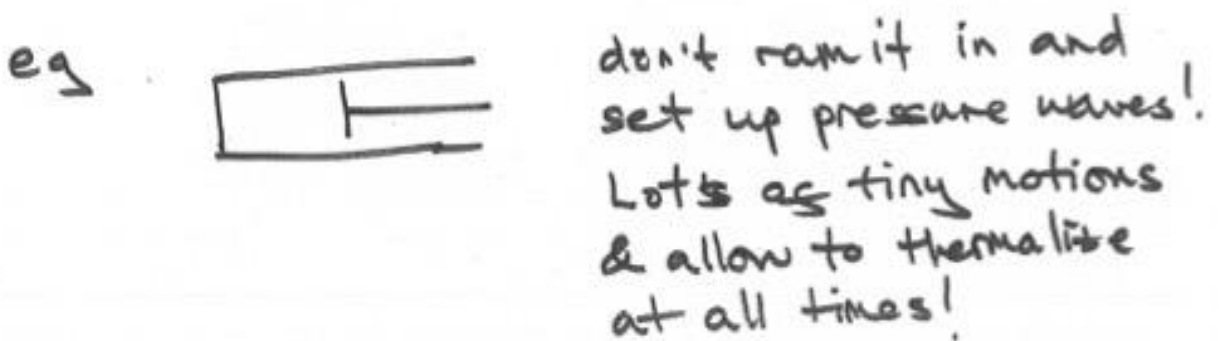 eg
don't ram it in and
set up pressure waves!
Lots of tiny motions
& allow to thermalise
at all times!